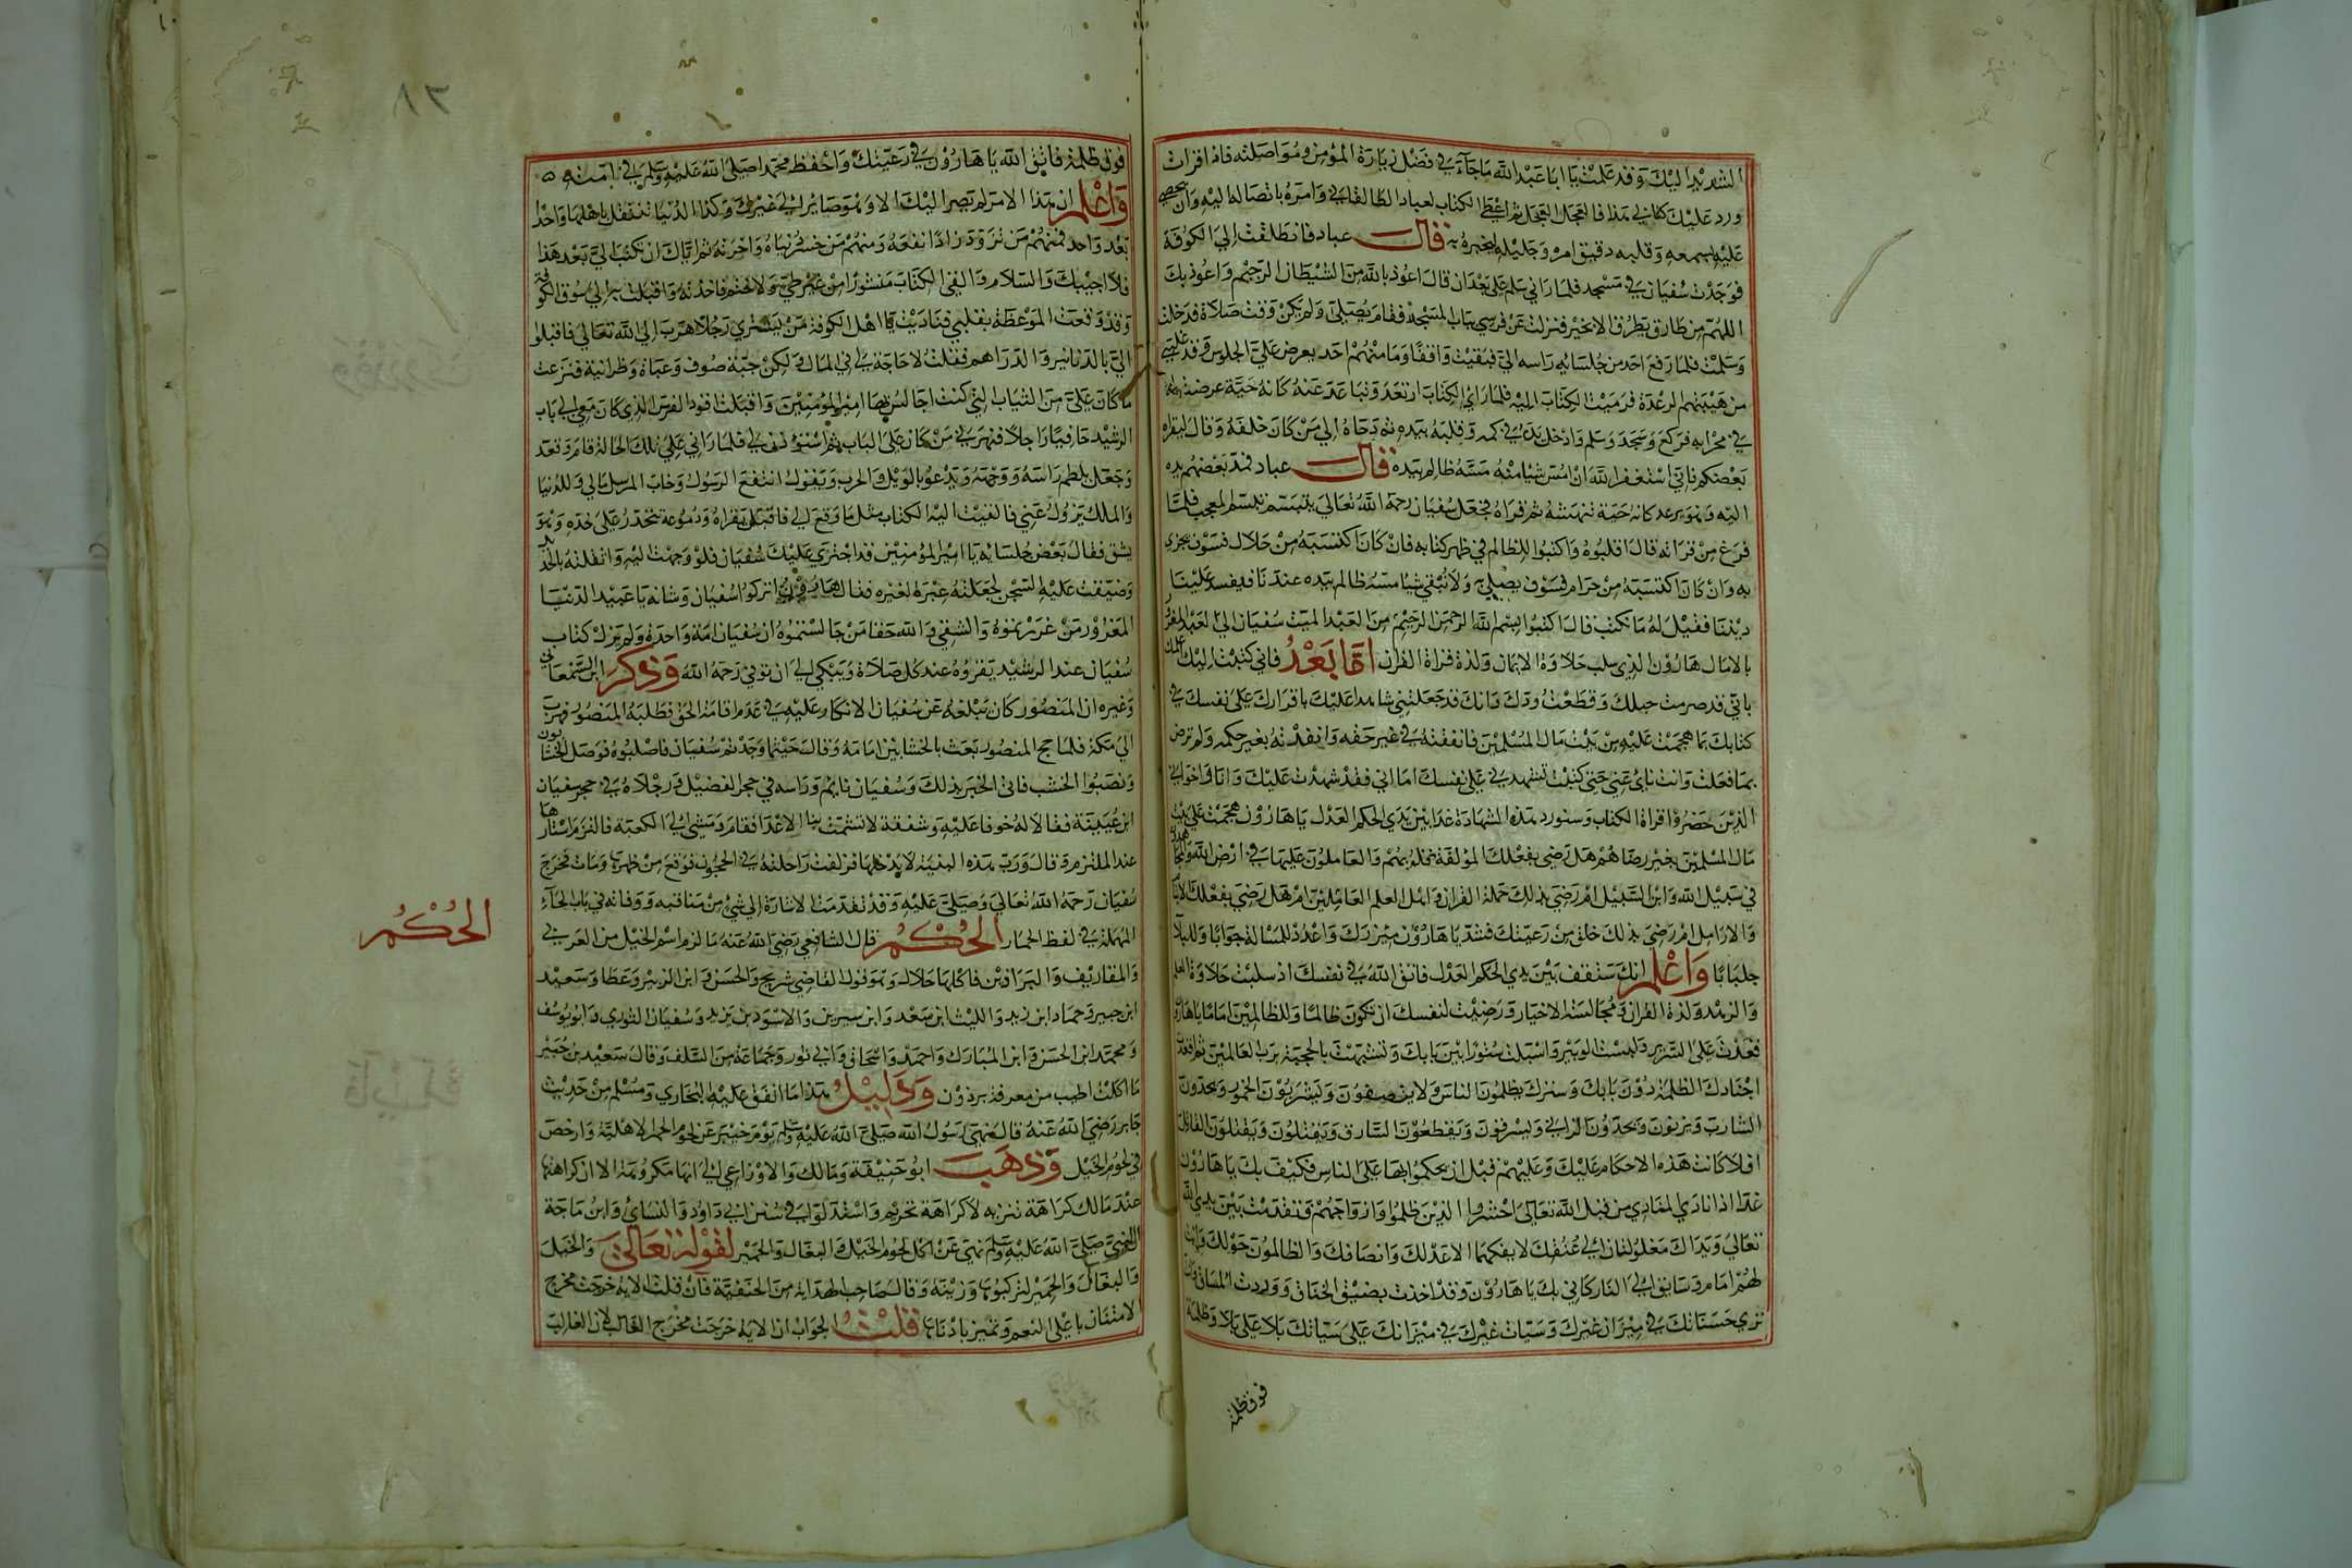 الشديد اليك وقد علمت يا ابا عبد الله ما جاء في فضل زيارة المؤمن ومواصلته فاذا قرات
ورد عليك كتابي هذا فالعجل العجل ثم اعطى الكتاب لعباد الطالقاني وامره بايصاله اليه وان يحصي
عليه بسمعه وقلبه دقيق امره وجليله ليخبره به قال عباد فانطلقت الى الكوفة
فوجدت سفيان في مسجد فلما راني على بعد ان قال اعوذ بالله من الشيطان الرجيم واعوذ بك
اللهم من طارق يطرق الا بخير فنزلت عن فرسي بباب المسجد فقام يصلي ولم يكن وقت صلاة فدخلت
وسلمت فلما رفع احد من جلسائه راسه الي فبقيت واقفا وما منهم احد يعرض علي الجلوس وقد علتني
من هيبتهم الرعدة فرميت الكتاب اليه فلما راى الكتاب ارتعد وتباعد عنه كانه حية عرضت له
في محرابه فركع وسجد وسلم وادخل يده في كمه وقلبه بيده ورماه الى من كان خلفه وقال ليقراه
بعضكم فاني استغفر الله ان امس شيا منه مسه ظالم بيده قال عباد فمد بعضهم يده
اليه وهو يرعد كانه حية تنهشه ثم قراه فجعل سفيان رحمه الله تعالى يتبسم تبسم المعجب فلما
فرغ من قراته قال اقلبوه واكتبوا للظالم في ظهر كتابه فان كان اكتسبه من حلال فسوف يجزى
به وان كان اكتسبه من حرام فسوف يصلى ولا يبقى شيا مسه ظالم بيده عندنا فيفسد علينا
ديننا فقيل له ما نكتب قال اكتبوا بسم الله الرحمن الرحيم من العبد الميت سفيان الى العبد المغرور
بالامال هارون الذي سلب حلاوة الايمان ولذة قراة القران اما بعد فاني كتبت اليك اعلمك
باني قد صرمت حبلك وقطعت ودك وانك قد جعلتني شاهدا عليك باقرارك على نفسك في
كتابك بما هجمت عليه من بيت مال المسلمين فانفقته في غير حقه وانفذته بغير حكمه ولم ترض
بما فعلت وانت ناى عني حتى كتبت تشهدني على نفسك اما اني فقد شهدت عليك وانا واخواني
الذين حضروا قراة الكتاب وسنورد هذه الشهادة غدا بين يدي الحكم العدل يا هارون هجمت على بيت
مال المسلمين بغير رضاهم هل رضي بفعلك المؤلفة قلوبهم والعاملون عليها في ارض الله والمجاهدون
في سبيل الله وابن السبيل ام رضي بذلك حملة القران واهل العلم العاملين ام هل رضي بفعلك الايتام
والارامل ام رضي بذلك خلق من رعيتك فشد يا هارون ميزرك واعدد للمسالة جوابا وللبلآ
جلبابا واعلم انك ستقف بين يدي الحكم العدل فاتق الله في نفسك اذ سلبت حلاوة العلم
والزهد ولذة القران ومجالسة الاخيار ورضيت لنفسك ان تكون ظالما وللظالمين اماما يا هارون
قعدت على السرير ولبست الوبير واسبلت ستورا بين بابك وتشبهت بالحجبة برب العالمين ثم اقعدت
اجنادك الظلمة دون بابك وسترك يظلمون الناس ولا ينصفون ويشربون الخمور ويحدون
الشارب ويزنون ويحدون الزاني ويسرقون ويقطعون السارق ويقتلون ويقتلون القاتل
افلا كانت هذه الاحكام عليك وعليهم قبل ان يحكموا بها على الناس فكيف بك يا هارون
غدا اذا نادى المنادي من قبل الله تعالى احشروا الذين ظلموا وازواجهم وتقدمت بين يدي الله
تعالى ويداك مغلولتان الى عنقك لا يفكهما الا عدلك وانصافك والظالمون حولك وانت
لهم امام وسايق الى النار كاني بك يا هارون وقد اخذت بضيق الخناق ووردت المساق وانت
ترى حسناتك في ميزان غيرك وسيات غيرك في ميزانك على سياتك بلاء على بلاء وظلمة
فوق ظلمة
٣٨
فوق ظلمة فاتق الله يا هارون في رعيتك واحفظ محمدا صلى الله عليه وسلم في امته
واعلم ان هذا الامر لم يصر اليك الا وهو صاير الى غيرك وكذا الدنيا تنتقل باهلها واحدا
بعد واحد فمنهم من تزود زادا نفعه ومنهم من خسر دنياه واخرته ثم اياك ان تكتب الي بعد هذا
فلا اجيبك والسلام والقى الكتاب منشورا من غير طي ولا ختم فاخذته واقبلت به الى سوق الكوفة
وقد وقعت الموعظة بقلبي فناديت يا اهل الكوفة من يشتري رجلا هرب الى الله تعالى فاقبلوا
الي بالدنانير والدراهم فقلت لا حاجة لي في المال ولكن جبة صوف وعباة وظرانية فنزعت
ما كان علي من الثياب التي كنت اجالس بها امير المؤمنين واقبلت اقود الفرس الذي كان معي الى باب
الرشيد حافيا راجلا فهزئ بي من كان على الباب ثم استؤذن لي فلما راني على تلك الحالة قام وقعد
وجعل يلطم راسه ووجهه ويدعو بالويل والحرب ويقول انتفع الرسول وخاب المرسل مالي وللدنيا
والملك يزول عني فالقيت اليه الكتاب مثل ما وقع لي فاقبل يقراه ودموعه تتحدر على خده وهو
يشق فقال بعض جلسائه يا امير المؤمنين قد اجترى عليك سفيان فلو وجهت اليه واثقلته بالحديد
وضيقت عليه السجن لجعلته عبرة لغيره فقال هارون اتركوا سفيان وشانه يا عبيد الدنيا
المغرور من غررتموه والشقي والله حقا من جالستموه ان سفيان امة واحدة ولم يزل كتاب
سفيان عند الرشيد يقروه عند كل صلاة ويبكي الى ان توفي رحمه الله وذكر ابن السمعاني
وغيره ان المنصور كان يبلغه عن سفيان الانكار عليه في عدم اقامة الحق فطلبه المنصور فهرب
الى مكة فلما حج المنصور بعث بالخشابين امامه وقال حيثما وجدتم سفيان فاصلبوه فوصل الخشابون
ونصبوا الخشب فاتى الخبر بذلك وسفيان نايم وراسه في حجر الفضيل ورجلاه في حجر سفيان
ابن عيينة فقالا له خوفا عليه وشفقة لا تشمت بنا الاعدا فقام ومشى الى الكعبة فالتزم استارها
عند الملتزم وقال ورب هذه البنية لا يدخلها فزلقت راحلته في الحجون فوقع من ظهرها ومات فخرج
سفيان رحمه الله تعالى وصلى عليه وقد تقدمت الاشارة الى شئ من مناقبه ووفاته في باب الحآء
المهملة في لفظ الحمار الحكم قال الشافعي رضي الله عنه ما لزم اسم الخيل من العرابي
والمقاريف والبراذين فاكلها حلال وهو قول القاضي شريح والحسن وابن الزبير وعطا وسعيد
ابن جبير وحماد ابن زيد والليث ابن سعد وابن سيرين والاسود بن يزيد وسفيان الثوري وابو يوسف
ومحمد ابن الحسن وابن المبارك واحمد واسحاق وابي ثور وجماعة من السلف وقال سعيد بن جبير
ما اكلت اطيب من معرفة برذون ودليل هذا ما اتفق عليه البخاري ومسلم من حديث
جابر رضي الله عنه قال نهى رسول الله صلى الله عليه وسلم يوم خيبر عن لحوم الحمر الاهلية وارخص
في لحوم الخيل وذهب ابو حنيفة ومالك والاوزاعي الى انها مكروهة الا ان كراهتها
عند مالك كراهة تنزيه لا كراهة تحريم واستدلوا بما في سنن ابي داود والنسائ وابن ماجة
النبي صلى الله عليه وسلم نهى عن اكل لحوم الخيل والبغال والحمير لقوله تعالى والخيل
والبغال والحمير لتركبوها وزينة وقال صاحب الهداية من الحنفية فان قلت الاية خرجت مخرج
الامتنان باعلى النعم وتميز بادناها قلت الجواب ان الاية خرجت مخرج الغالب لان الغالب
الحكم